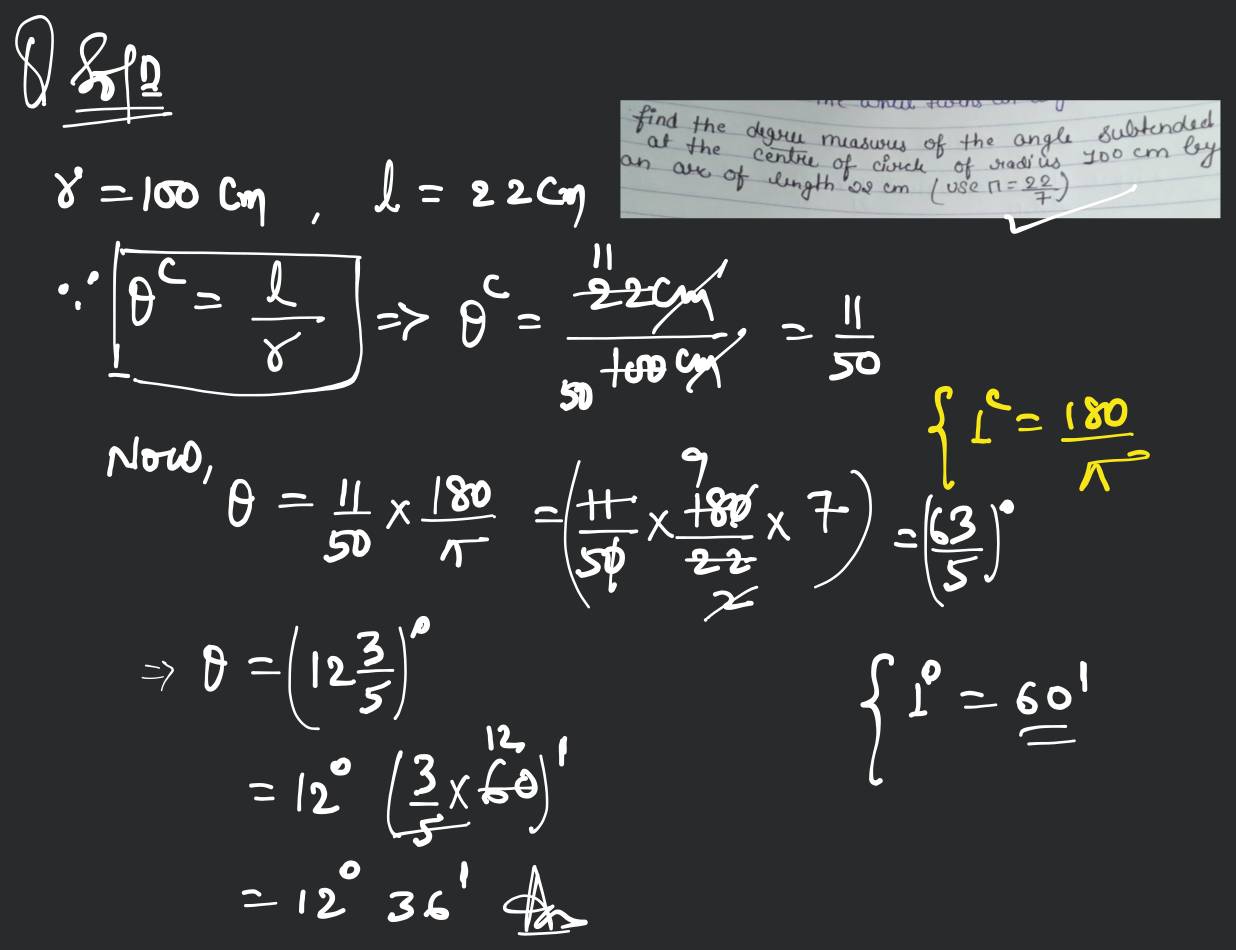 Soln
find the degree measures of the angle subtended
at the centre of circle of radius 100 cm by
an arc of length 22 cm (use π = 22/7)
r = 100 cm , l = 22 cm
∵ θᶜ = l/r ⇒ θᶜ = 22cm/100 cm = 11/50
11
50
{ 1ᶜ = 180/π
Now, θ = 11/50 × 180/π = (11/50 × 180/22 × 7) = (63/5)°
9
2
⇒ θ = (12 3/5)°
{ 1° = 60'
= 12° (3/5 × 60)'
12
= 12° 36' Ans